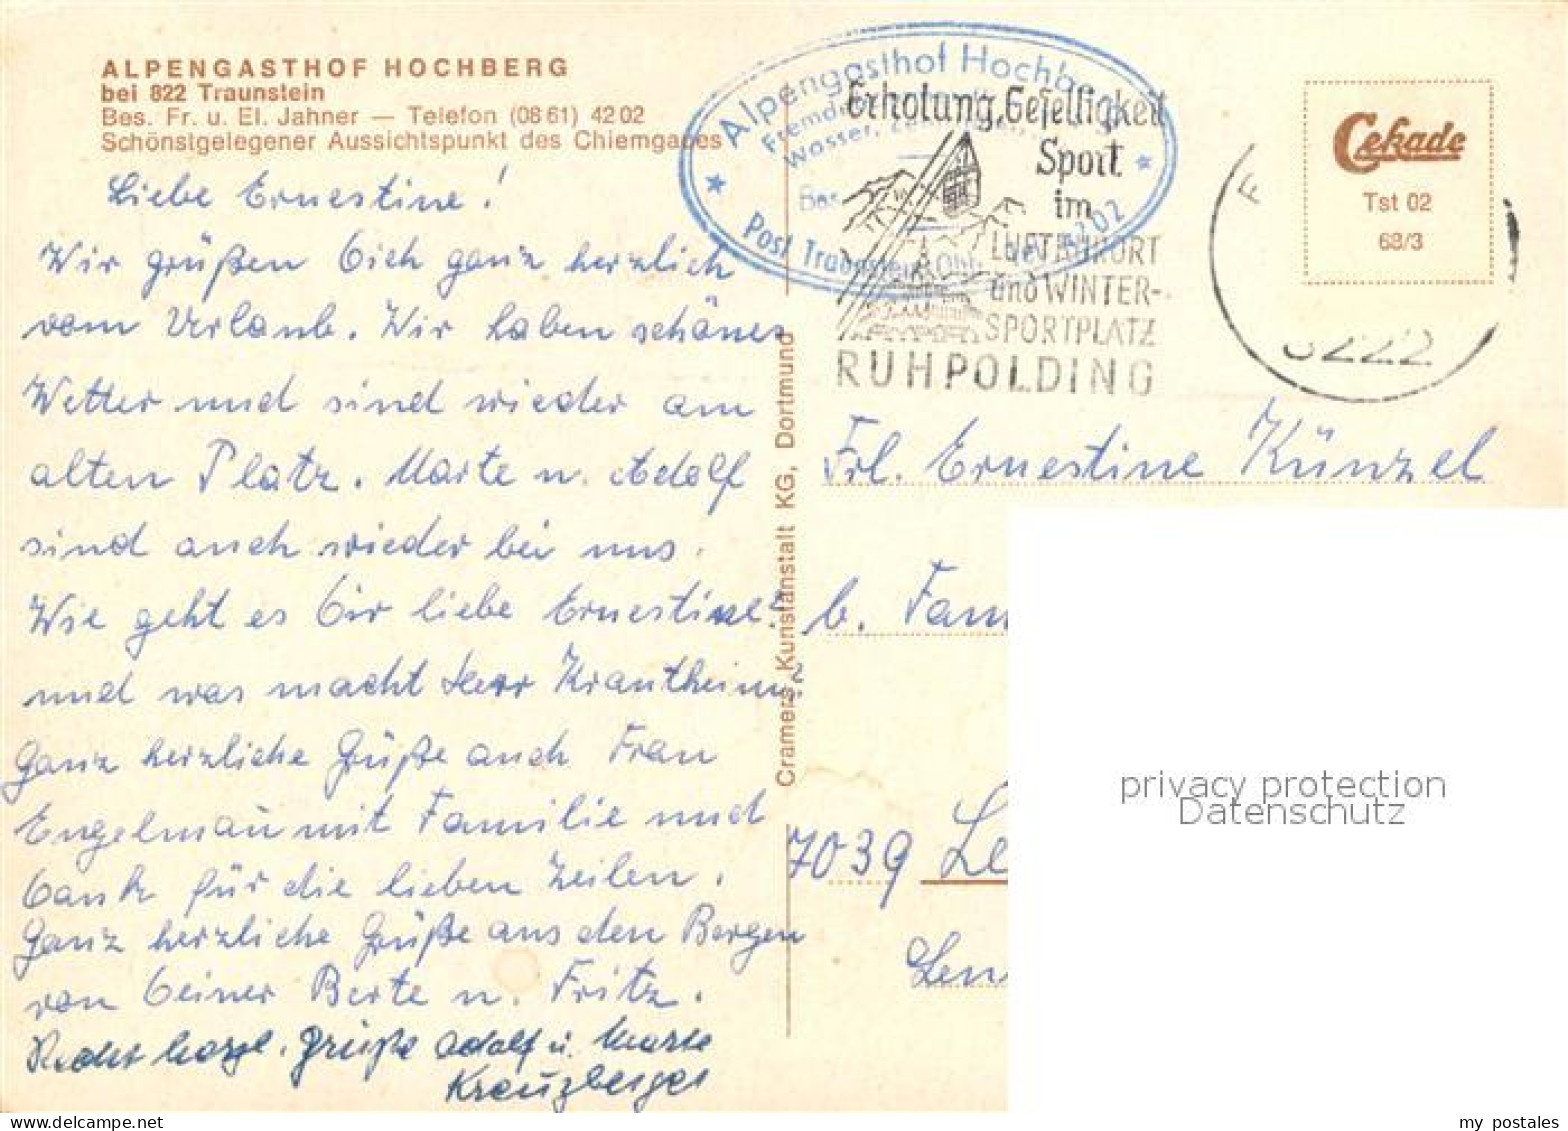 ALPENGASTHOF HOCHBERG
bei 822 Traunstein
Bes. Fr. u. El. Jahner — Telefon (08 61) 42 02
Schönstgelegener Aussichtspunkt des Chiemgaues
Liebe Ernestine!
Wir grüßen Dich ganz herzlich
vom Urlaub. Wir haben schönes
Wetter und sind wieder am
alten Platz. Marte u. Adolf
sind auch wieder bei uns.
Wie geht es Dir liebe Ernestine?
und was macht Herr Krautheim?
Ganz herzliche Grüße auch Frau
Engelmaũ mit Familie und
Dank für die lieben Zeilen.
Ganz herzliche Grüße aus den Bergen
von Deiner Berte u. Fritz.
Recht herzl. Grüße Adolf u. Marte
Kreuzberger
Cramers Kunstanstalt KG, Dortmund
Alpengasthof Hochberg
Wasser,
Bes.
Post Traunstein Obb. 4202
Erholung, Geselligkeit
Sport
im
LUFTKURORT
und WINTER-
SPORTPLATZ
RUHPOLDING
8222
Cekade
Tst 02
68/3
Frl. Ernestine Künzel
b. Fam
7039 Le
Len
privacy protection
Datenschutz
my postales